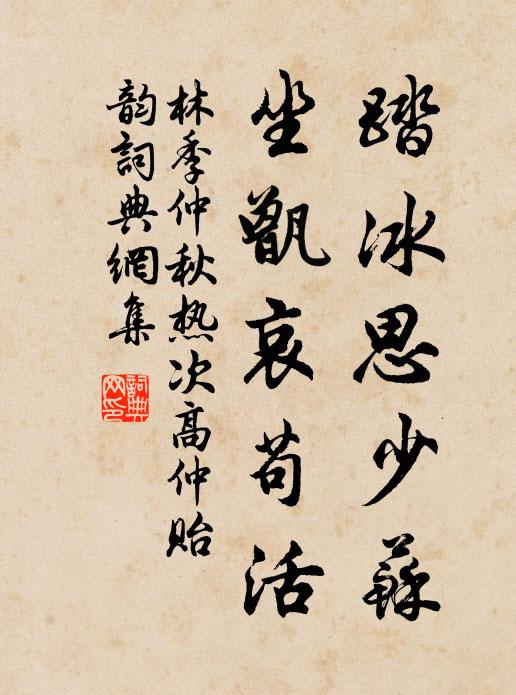 踏冰思少蘇
坐甑哀苟活
林季仲秋热次高仲貽
韵詞典網集
詞典網印